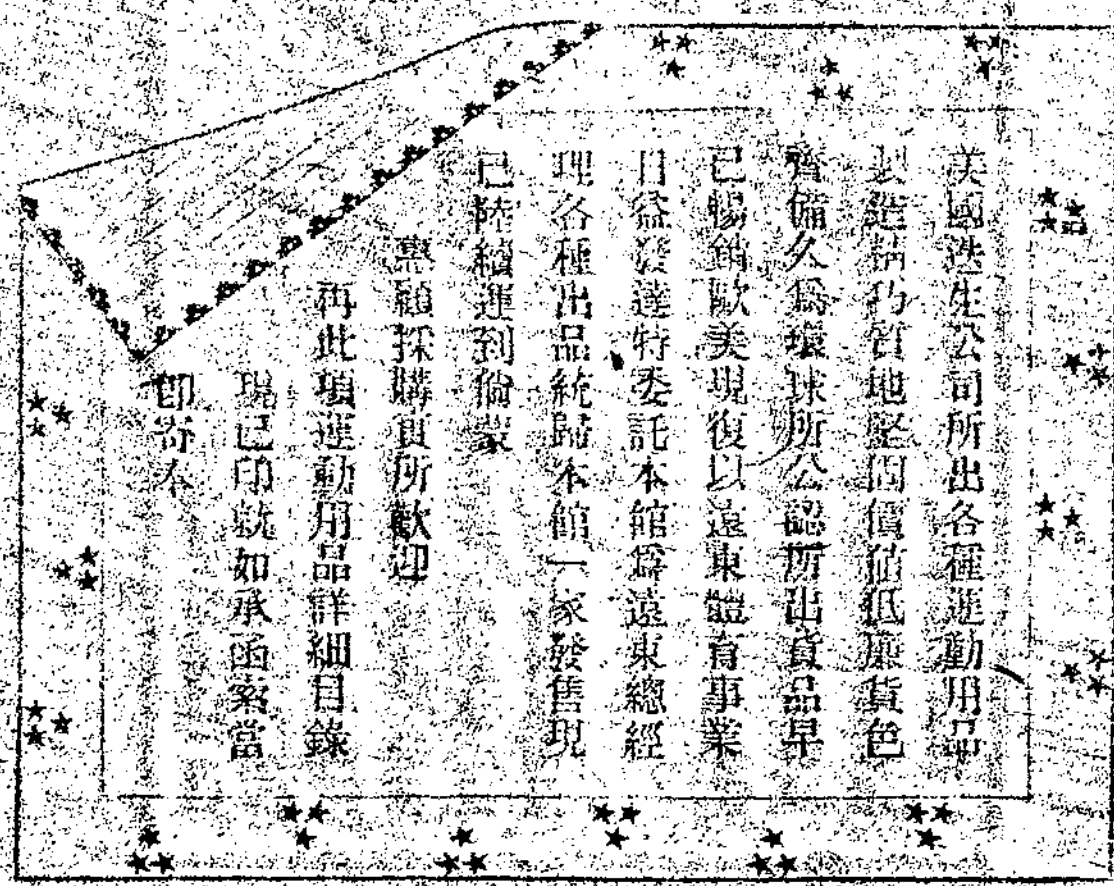 美國進生公司所出各種運動用品
製造精巧質地堅固價值低廉貨色
齊備久爲環球所公認所出貨品早
已暢銷歐美現復以遠東體育事業
日益發達特委託本館爲遠東總經
理各種出品統歸本館一家發售現
已陸續運到倘蒙
惠顧採購實所歡迎
再此項運動用品詳細目錄
現已印就如承函索當
即寄奉